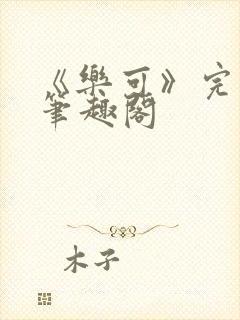 《樂可》完
筆趣閣
木子